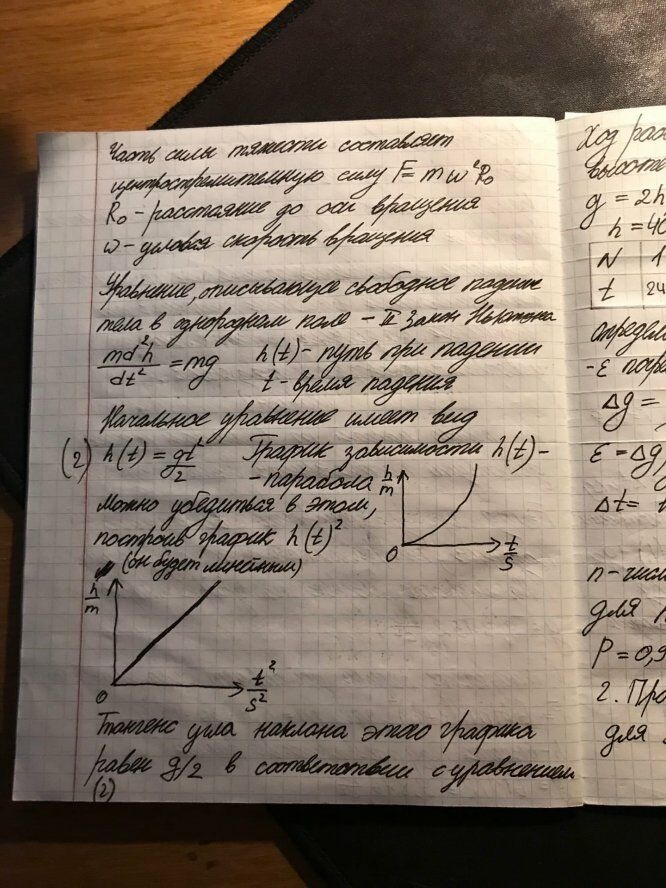 Часть силы тяжести составляет
центростремительную силу F = mω²R₀
R₀ - расстояние до оси вращения
ω - угловая скорость вращения
Уравнение, описывающее свободное падение
тела в однородном поле - II Закон Ньютона
md²h/dt² = mg h(t) - путь при падении
t - время падения
Начальное уравнение имеет вид
(2) h(t) = gt²/2 График зависимости h(t) -
- парабола
Можно убедиться в этом,
построив график h(t)²
(он будет линейным)
h/m
0
t/s
h/m
0
t²/s²
Тангенс угла наклона этого графика
равен g/2 в соответствии с уравнением
(2)
Ход
высоте
g = 2h
h = 40
N 1
t 24
определ
- ε погр
Δg =
ε = Δg
Δt =
n - чис
для
P = 0,9
2. Про
для